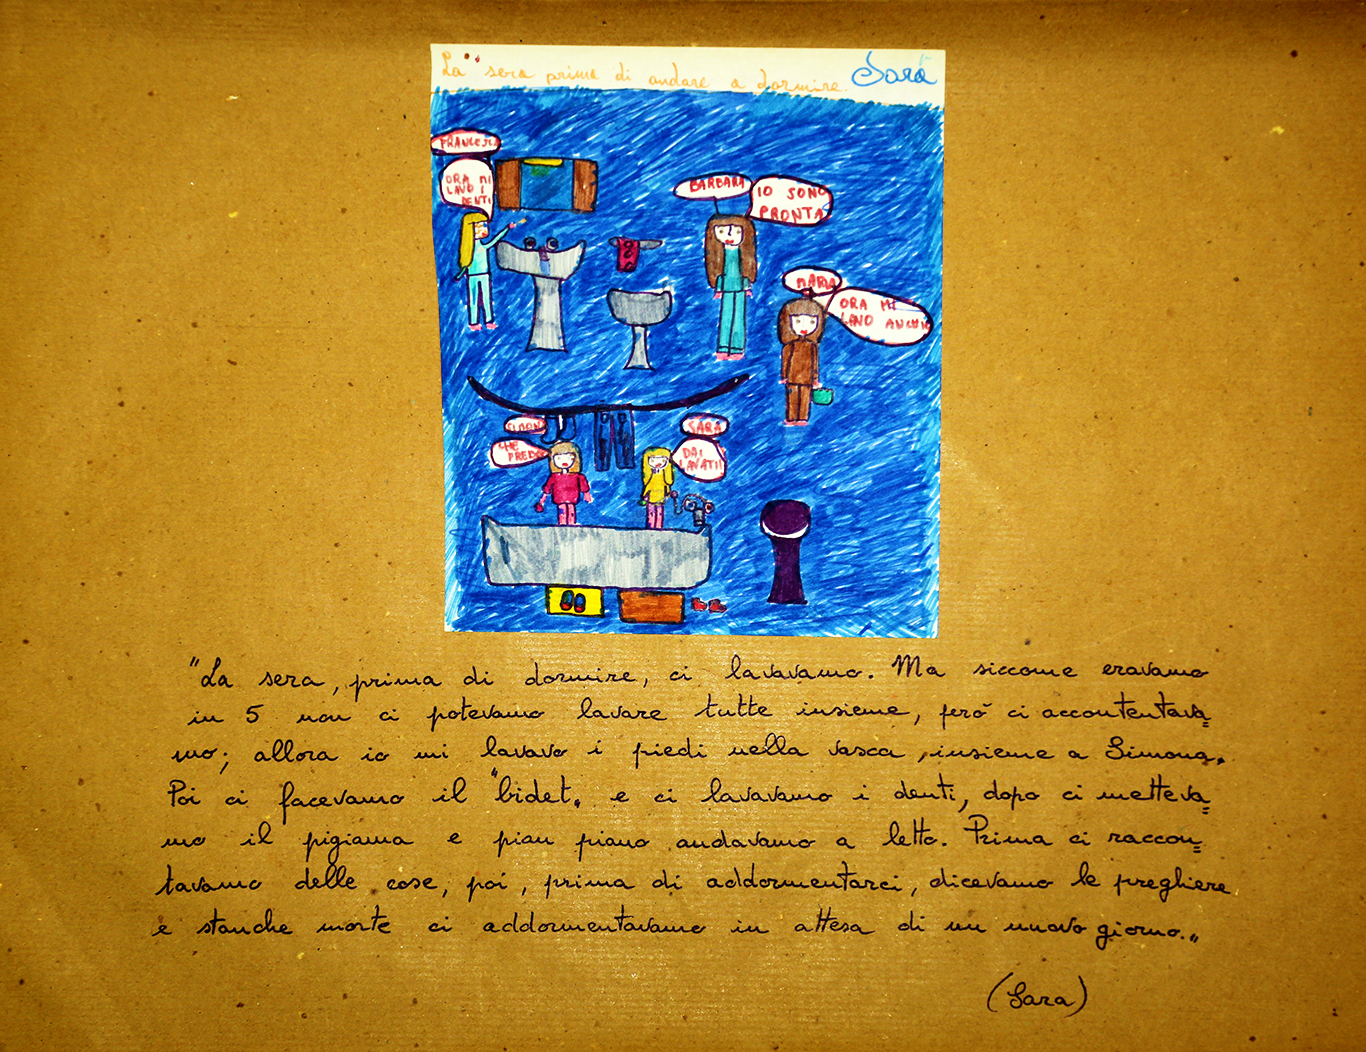 La sera prima di andare a dormire. Sara
FRANCESCA
ORA MI
LAVO I
DENTI
BARBARA
IO SONO
PRONTA
MARIA
ORA MI
LAVO ANCH'IO
SIMONA
CHE
FREDDO
SARA
DAI
LAVATI!
"La sera, prima di dormire, ci lavavamo. Ma siccome eravamo
in 5 non ci potevamo lavare tutte insieme, però ci accontentava=
mo; allora io mi lavavo i piedi nella vasca, insieme a Simona.
Poi ci facevamo il "bidet" e ci lavavamo i denti, dopo ci metteva=
mo il pigiama e pian piano andavamo a letto. Prima ci raccon=
tavamo delle cose, poi, prima di addormentarci, dicevamo le preghiere
e stanche morte ci addormentavamo in attesa di un nuovo giorno."
(Sara)